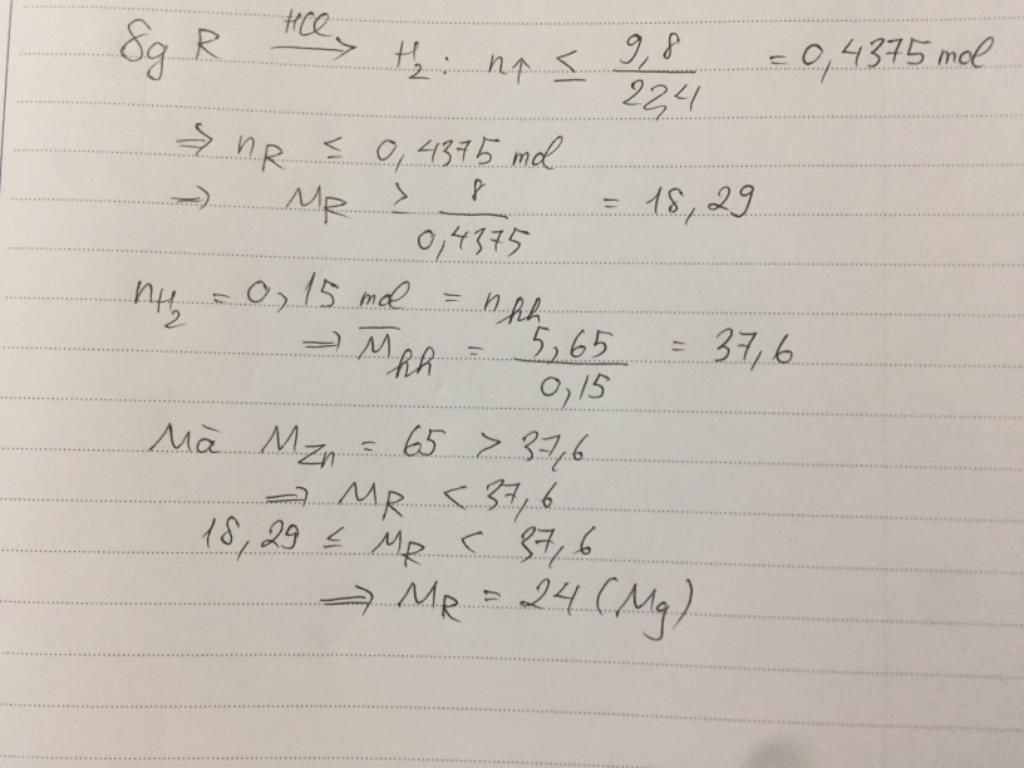 8g R \xrightarrow{HCl} H₂: n↑ ≤ 9,8/22,4 = 0,4375 mol
⇒ nR ≤ 0,4375 mol
⇒ MR ≥ 8/0,4375 = 18,29
nH₂ = 0,15 mol = nhh
⇒ M̅hh = 5,65/0,15 = 37,6
Mà MZn = 65 > 37,6
⇒ MR < 37,6
18,29 ≤ MR < 37,6
⇒ MR = 24 (Mg)